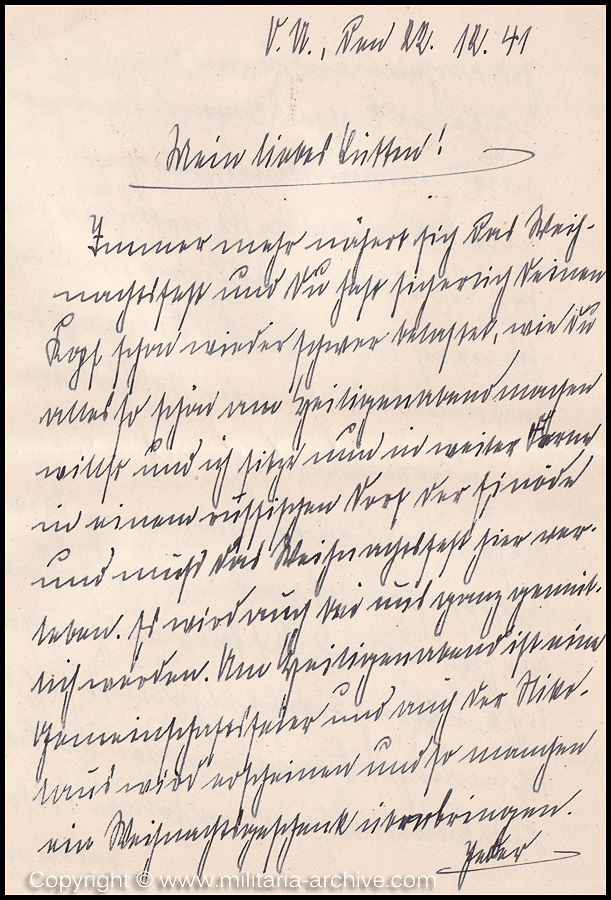 O.U., den 22. 12. 41
Mein liebes Lutten!
Immer mehr nähert sich das Weih-
nachtsfest und Du hast sicherlich Deinen
Kopf schon wieder schwer belastet, wie Du
alles so schön am Heiligenabend machen
willst und ich sitze nun in weiter Ferne
in einem russischen Dorf der Einöde
und muß das Weihnachtsfest hier ver-
leben. Es wird auch bei uns ganz gemüt-
lich werden. Am Heiligenabend ist eine
Gemeinschaftsfeier und auch der Niko-
laus wird erscheinen und so manchen
ein Weihnachtsgeschenk überbringen.
Jeder
Copyright © www.militaria-archive.com